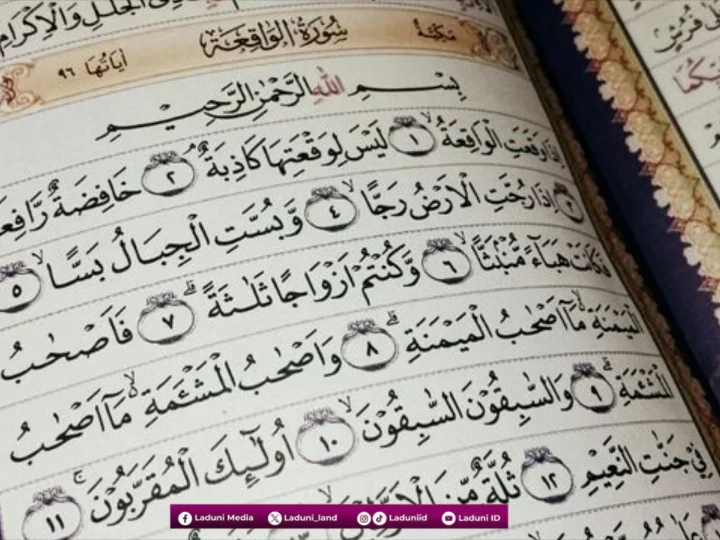 الْجَلٰلِ وَالْاِكْرَامِ
سُوْرَةُ الْوَاقِعَةِ مَكِّيَّةٌ اٰيَاتُهَا ٩٦
بِسْمِ اللّٰهِ الرَّحْمٰنِ الرَّحِيْمِ
اِذَا وَقَعَتِ الْوَاقِعَةُ ۙ ١ لَيْسَ لِوَقْعَتِهَا كَاذِبَةٌ ۘ ٢ خَافِضَةٌ رَّافِعَةٌ
٣ اِذَا رُجَّتِ الْاَرْضُ رَجًّا ۙ ٤ وَّبُسَّتِ الْجِبَالُ بَسًّا ۙ ٥
فَكَانَتْ هَبَاۤءً مُّنْۢبَثًّا ۙ ٦ وَّكُنْتُمْ اَزْوَاجًا ثَلٰثَةً ۗ ٧ فَاَصْحٰبُ
الْمَيْمَنَةِ مَآ اَصْحٰبُ الْمَيْمَنَةِ ۗ ٨ وَاَصْحٰبُ الْمَشْـَٔمَةِ ۙ مَآ اَصْحٰبُ
الْمَشْـَٔمَةِ ۗ ٩ وَالسّٰبِقُوْنَ السّٰبِقُوْنَ ۙ ١٠ اُولٰۤىِٕكَ الْمُقَرَّبُوْنَ ۚ ١١
فِيْ جَنّٰتِ النَّعِيْمِ ١٢ ثُلَّةٌ مِّنَ الْاَوَّلِيْنَ
Laduni Media Laduni_land Laduniid Laduni ID